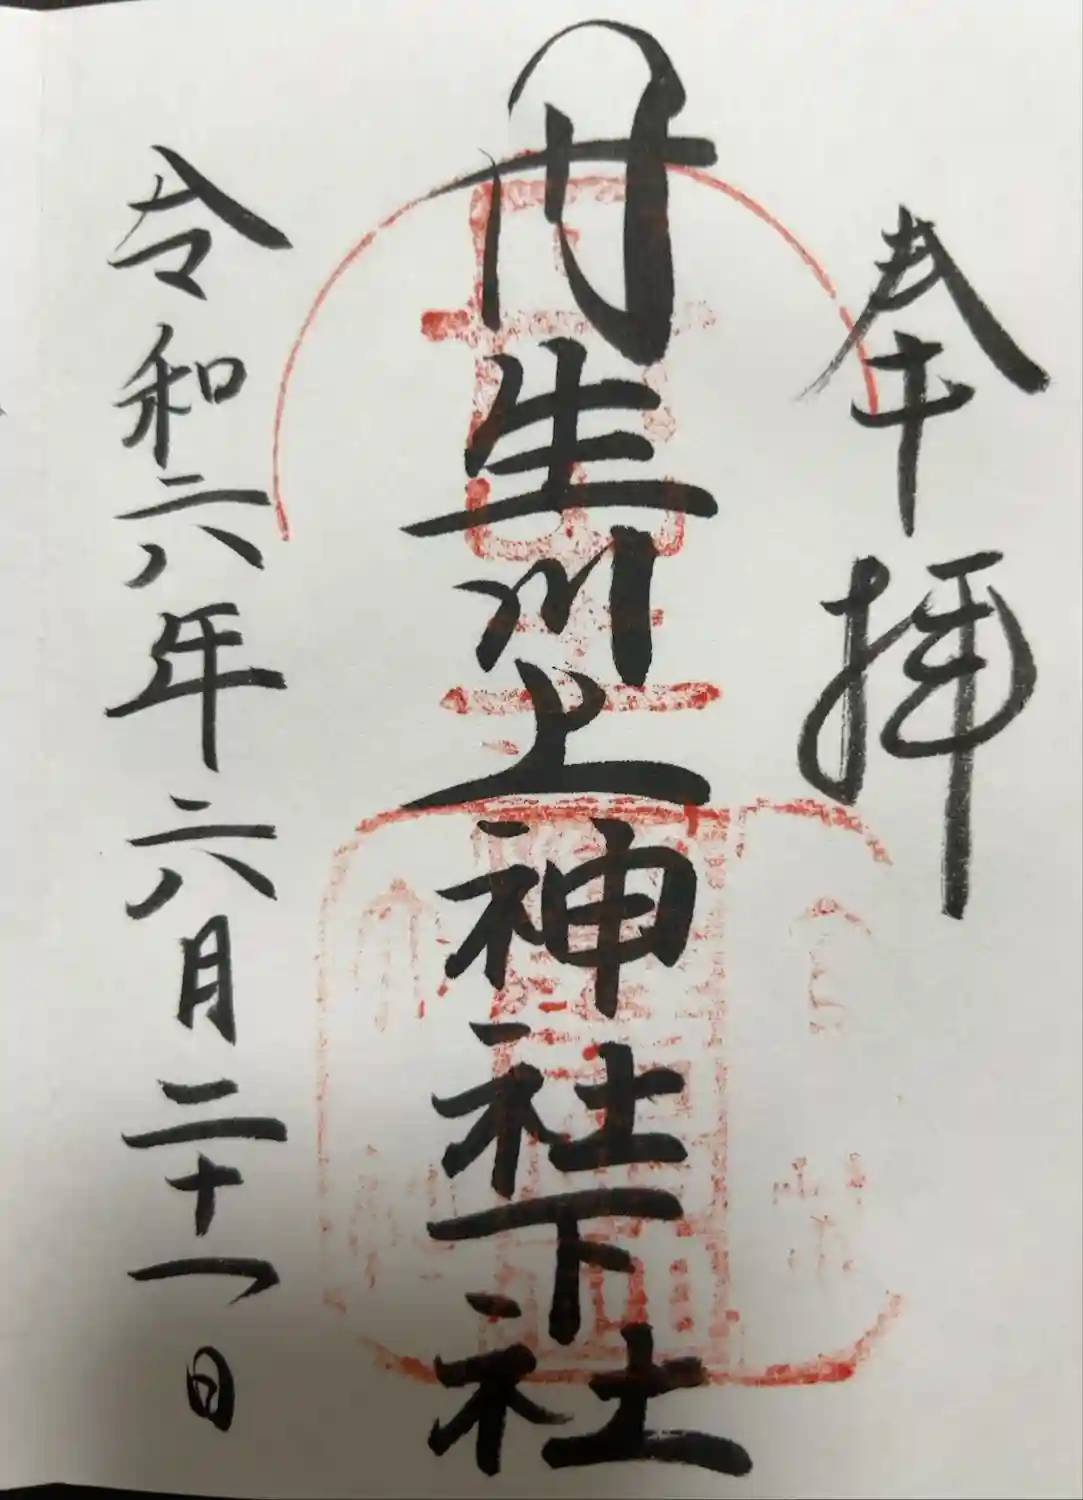 奉拝
丹生川上神社下社
令和六年六月二十一日